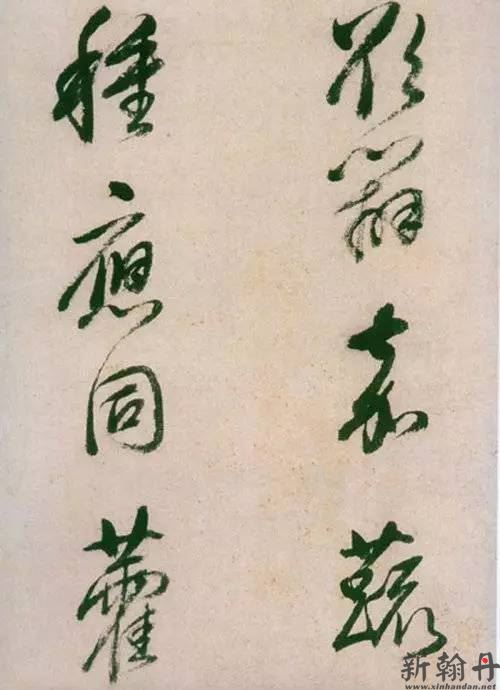 欲嘉蔬
種應同藿
新翰丹
www.xinhandan.net